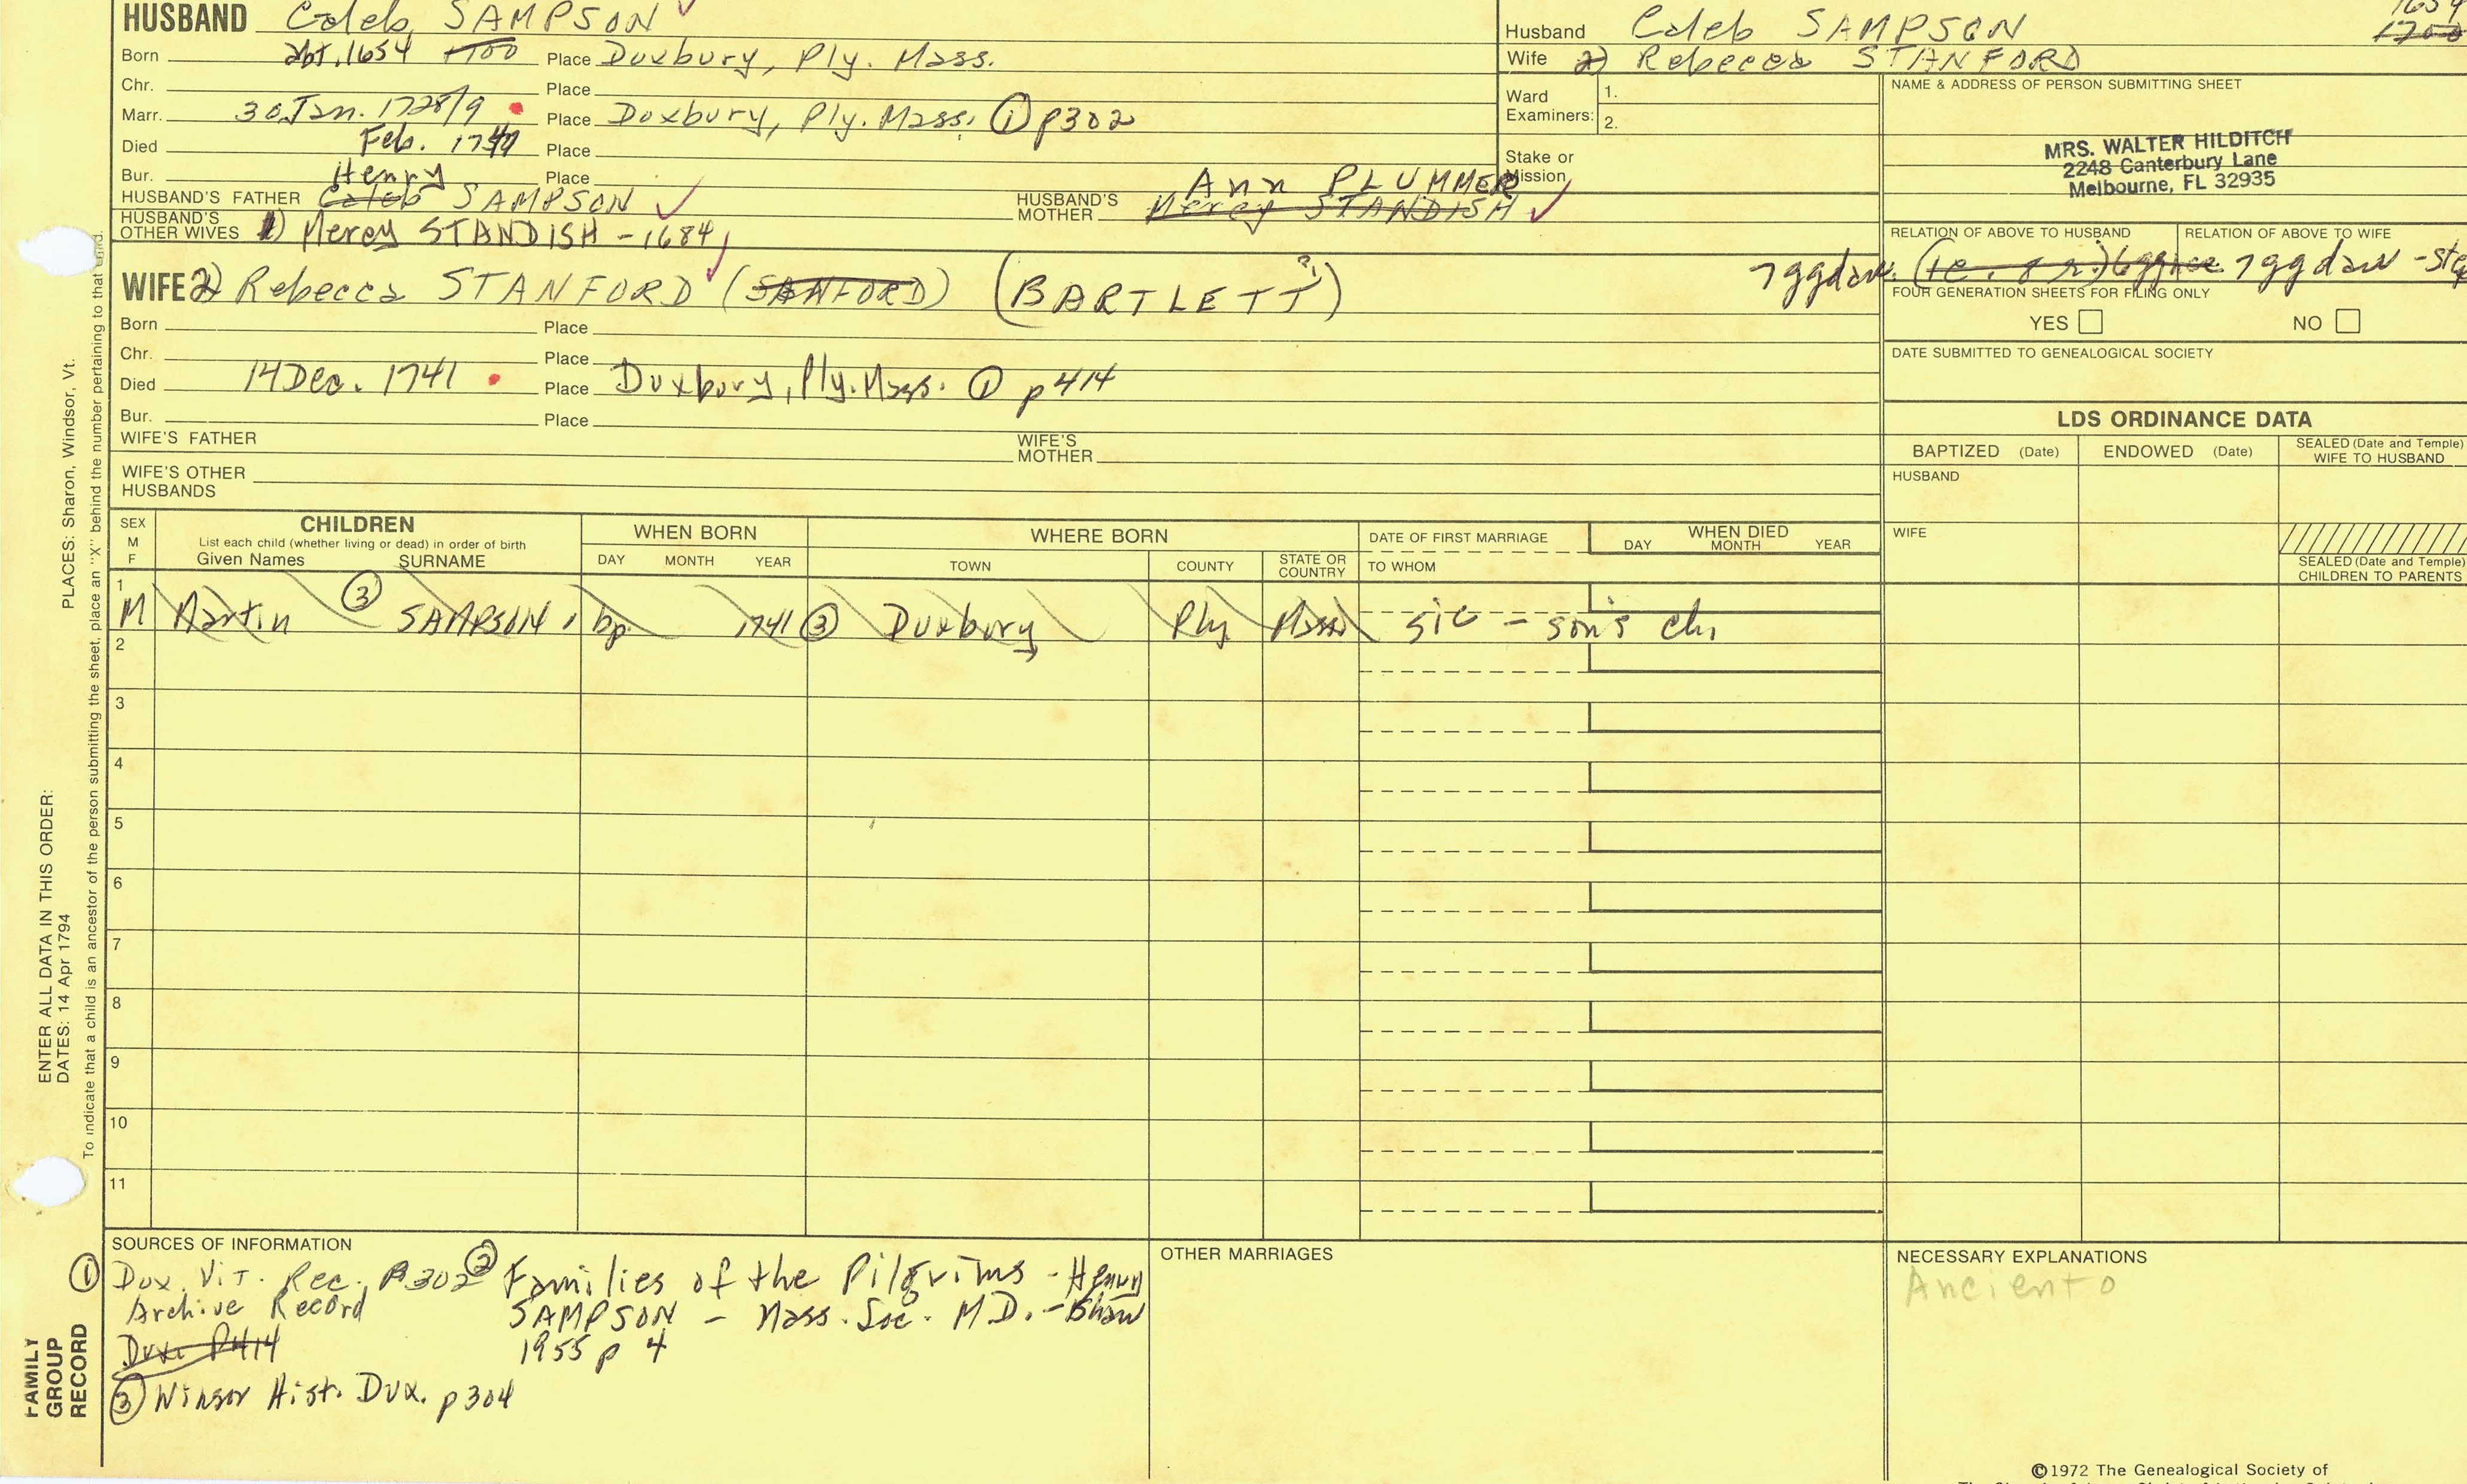 HUSBAND Caleb SAMPSON
Born abt. 1654 1700 Place Duxbury, Ply. Mass.
Chr. Place
Marr. 30 Jan. 1728/9 Place Duxbury, Ply. Mass. ① p302
Died Feb. 1749 Place
Bur. Place
HUSBAND'S FATHER Caleb Henry SAMPSON
HUSBAND'S MOTHER Mercy STANDISH Ann PLUMMER
HUSBAND'S OTHER WIVES 1) Mercy STANDISH - 1684
Husband Caleb SAMPSON 1654 1700
Wife 2) Rebecca STANFORD
Ward Examiners: 1.
2.
Stake or Mission
NAME & ADDRESS OF PERSON SUBMITTING SHEET
MRS. WALTER HILDITCH
2248 Canterbury Lane
Melbourne, FL 32935
RELATION OF ABOVE TO HUSBAND RELATION OF ABOVE TO WIFE
7ggdau. 7ggdau - step
FOUR GENERATION SHEETS FOR FILING ONLY
YES NO
DATE SUBMITTED TO GENEALOGICAL SOCIETY
WIFE 2) Rebecca STANFORD (SANFORD) (BARTLETT ?)
Born Place
Chr. Place
Died 14 Dec. 1741 Place Duxbury, Ply. Mass. ① p414
Bur. Place
WIFE'S FATHER WIFE'S MOTHER
WIFE'S OTHER HUSBANDS
LDS ORDINANCE DATA
BAPTIZED (Date) ENDOWED (Date) SEALED (Date and Temple) WIFE TO HUSBAND
HUSBAND
WIFE
SEALED (Date and Temple) CHILDREN TO PARENTS
SEX M F
CHILDREN
List each child (whether living or dead) in order of birth
Given Names SURNAME
WHEN BORN
DAY MONTH YEAR
WHERE BORN
TOWN COUNTY STATE OR COUNTRY
DATE OF FIRST MARRIAGE
TO WHOM
WHEN DIED
DAY MONTH YEAR
1 M Martin ③ SAMPSON bp. 1741 ③ Duxbury Ply Mass sic - son's ch.
2
3
4
5
6
7
8
9
10
11
SOURCES OF INFORMATION
① Dux. Vit. Rec. p302
Archive Record
Dux. P414
② Families of the Pilgrims - Henry
SAMPSON - Mass. Soc. M.D. - Shaw
1955 p 4
③ Winsor Hist. Dux. p304
OTHER MARRIAGES
NECESSARY EXPLANATIONS
Anciento
PLACES: Sharon, Windsor, Vt.
ENTER ALL DATA IN THIS ORDER:
DATES: 14 Apr 1794
To indicate that a child is an ancestor of the person submitting the sheet, place an "X" behind the number pertaining to that child.
FAMILY
GROUP
RECORD
©1972 The Genealogical Society of